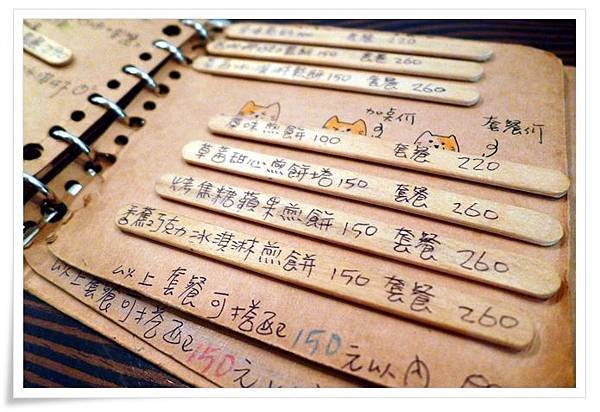 套餐 220
鬆餅 150 套餐 260
冰淇淋鬆餅 150 套餐 260
加点价 套餐价
原味煎餅 100 套餐 220
草莓甜心煎餅塔 150 套餐 260
烤焦糖蘋果煎餅 150 套餐 260
香蕉巧克力冰淇淋煎餅 150 套餐 260
以上套餐可搭配150元以內
以上套餐可搭配150元